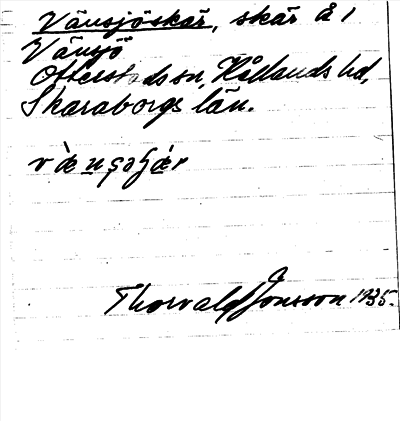 Vänsjöskär, skär å 1
Vänsjö
Otterstads sn, Kållands hd,
Skaraborgs län.
Thorvald Jonsson 1935.